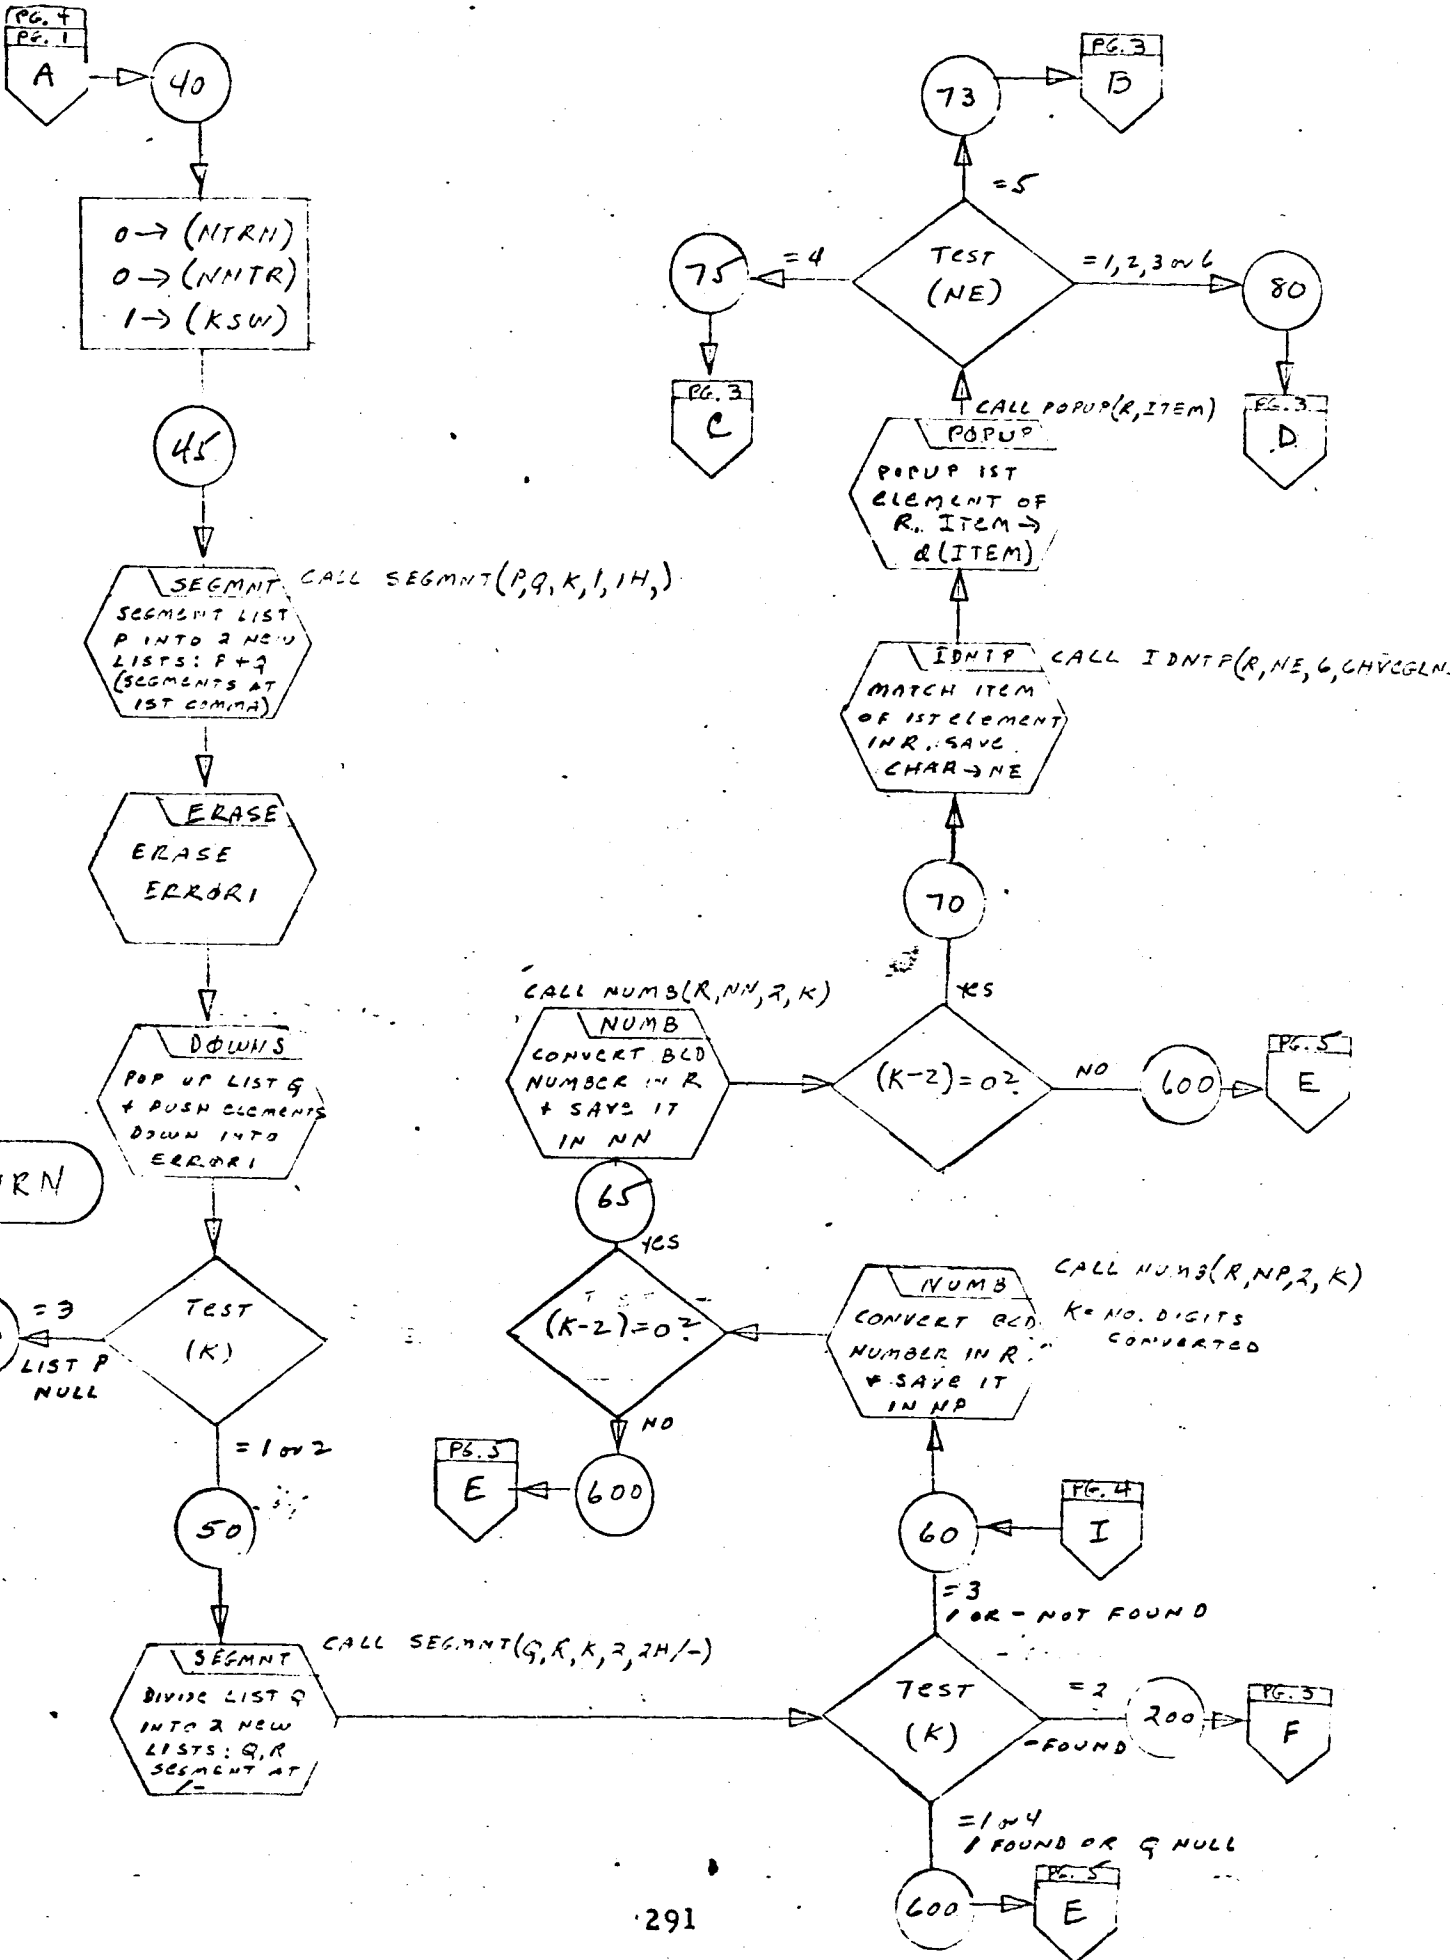 PG. 4
PG. 1
A
40
0 → (NTRN)
0 → (NMTR)
1 → (KSW)
45
SEGMNT
CALL SEGMNT(P,Q,K,1,1H,)
SEGMENT LIST
P INTO 2 NEW
LISTS: P + Q
(SEGMENTS AT
1ST COMMA)
ERASE
ERASE
ERRØR1
DØWNS
POP UP LIST Q
+ PUSH ELEMENTS
DOWN INTO
ERRØR1
RN
TEST
(K)
= 3
LIST P
NULL
= 1 or 2
50
SEGMNT
CALL SEGMNT(Q,R,K,2,2H/-)
DIVIDE LIST Q
INTO 2 NEW
LISTS: Q,R
SEGMENT AT
/-
TEST
(K)
= 3
/ OR - NOT FOUND
= 2
- FOUND
200
PG. 5
F
= 1 or 4
/ FOUND OR Q NULL
600
PG. 5
E
60
PG. 4
I
NUMB
CALL NUMB(R,NP,2,K)
K= NO. DIGITS
CONVERTED
CONVERT BCD
NUMBER IN R
+ SAVE IT
IN NP
(K-2)=0?
NO
600
PG. 5
E
YES
65
CALL NUMB(R,NN,2,K)
NUMB
CONVERT BCD
NUMBER IN R
+ SAVE IT
IN NN
(K-2)=0?
NO
600
PG. 5
E
YES
70
IDNTF
CALL IDNTF(R,NE,6,6HVCGLN
MATCH ITEM
OF 1ST ELEMENT
IN R. SAVE
CHAR → NE
POPUP
CALL POPUP(R,ITEM)
POPUP 1ST
ELEMENT OF
R. ITEM →
(ITEM)
TEST
(NE)
= 4
75
PG. 3
C
= 5
73
PG. 3
B
= 1, 2, 3 or 6
80
PG. 3
D
291